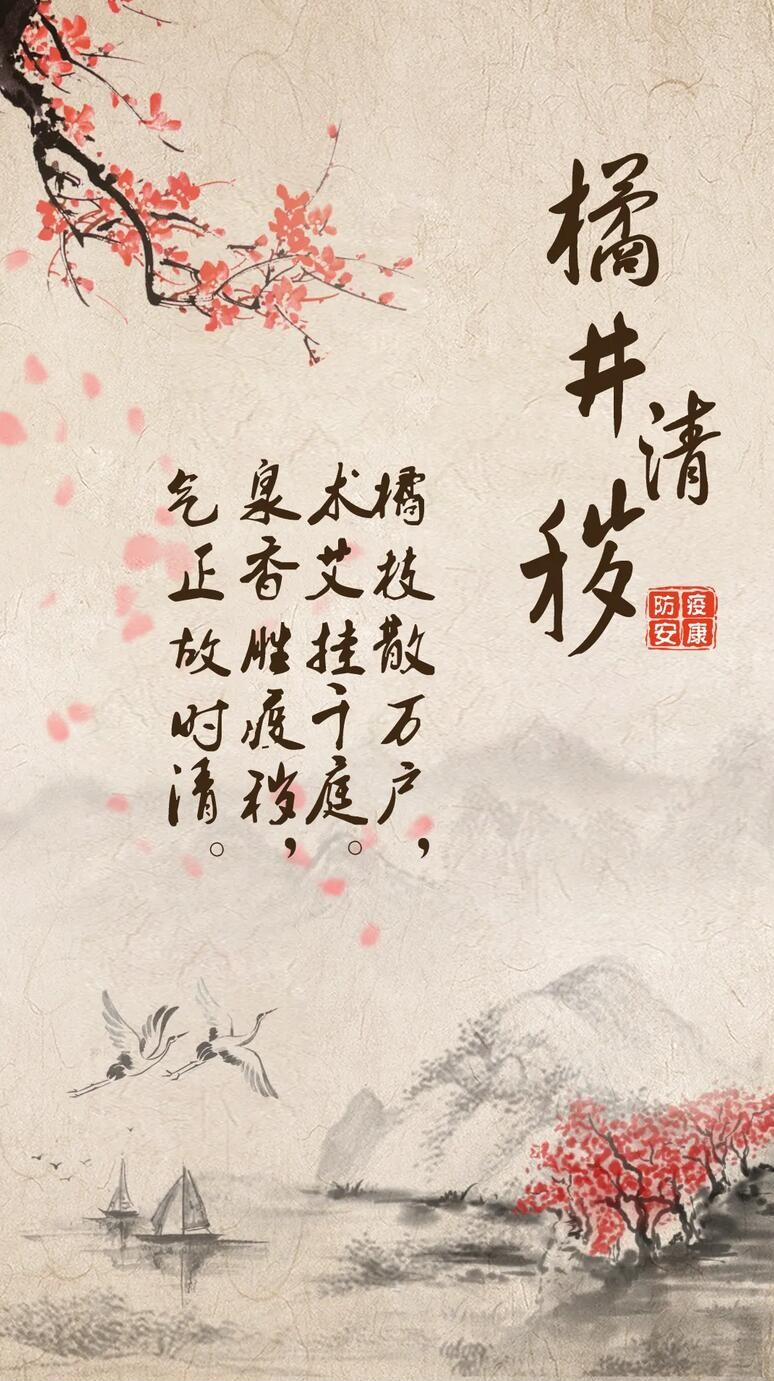 橘井清秽
疫康
防安
橘枝散万户，
术艾挂千庭。
泉香胜疫秽，
气正故时清。